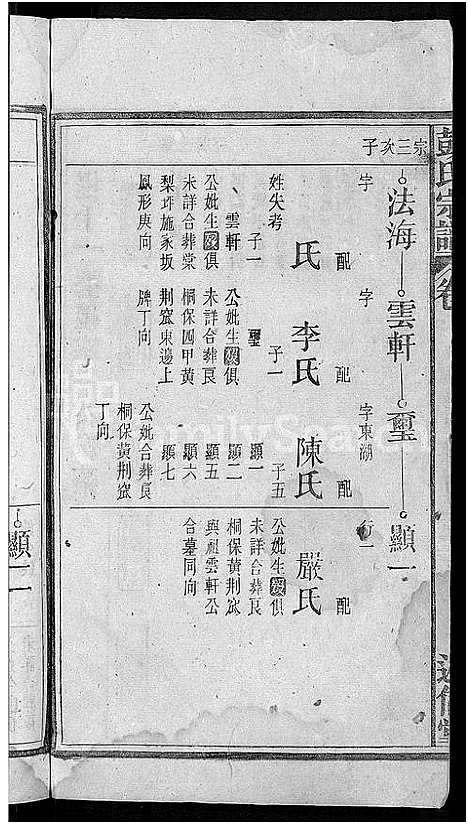 彭氏宗譜
卷
宗三亥子
法海
雲軒
璽
顯一
字
配
氏
姓失考
子一
雲軒
公妣生歿俱
未詳合葬棠
梨坪施家坂
鳳形庚向
字
配
李氏
子一
璽
公妣生歿俱
未詳合葬良
桐保四甲黃
荆窊東邊上
牌丁向
字東湖
配
陳氏
子五
顯一
顯二
顯五
顯六
顯七
公妣合葬良
桐保黃荆窊
丁向
行一
配
嚴氏
公妣生歿俱
未詳合葬良
桐保黃荆窊
與祖雲軒公
合墓同向
顯一
FamilySearch